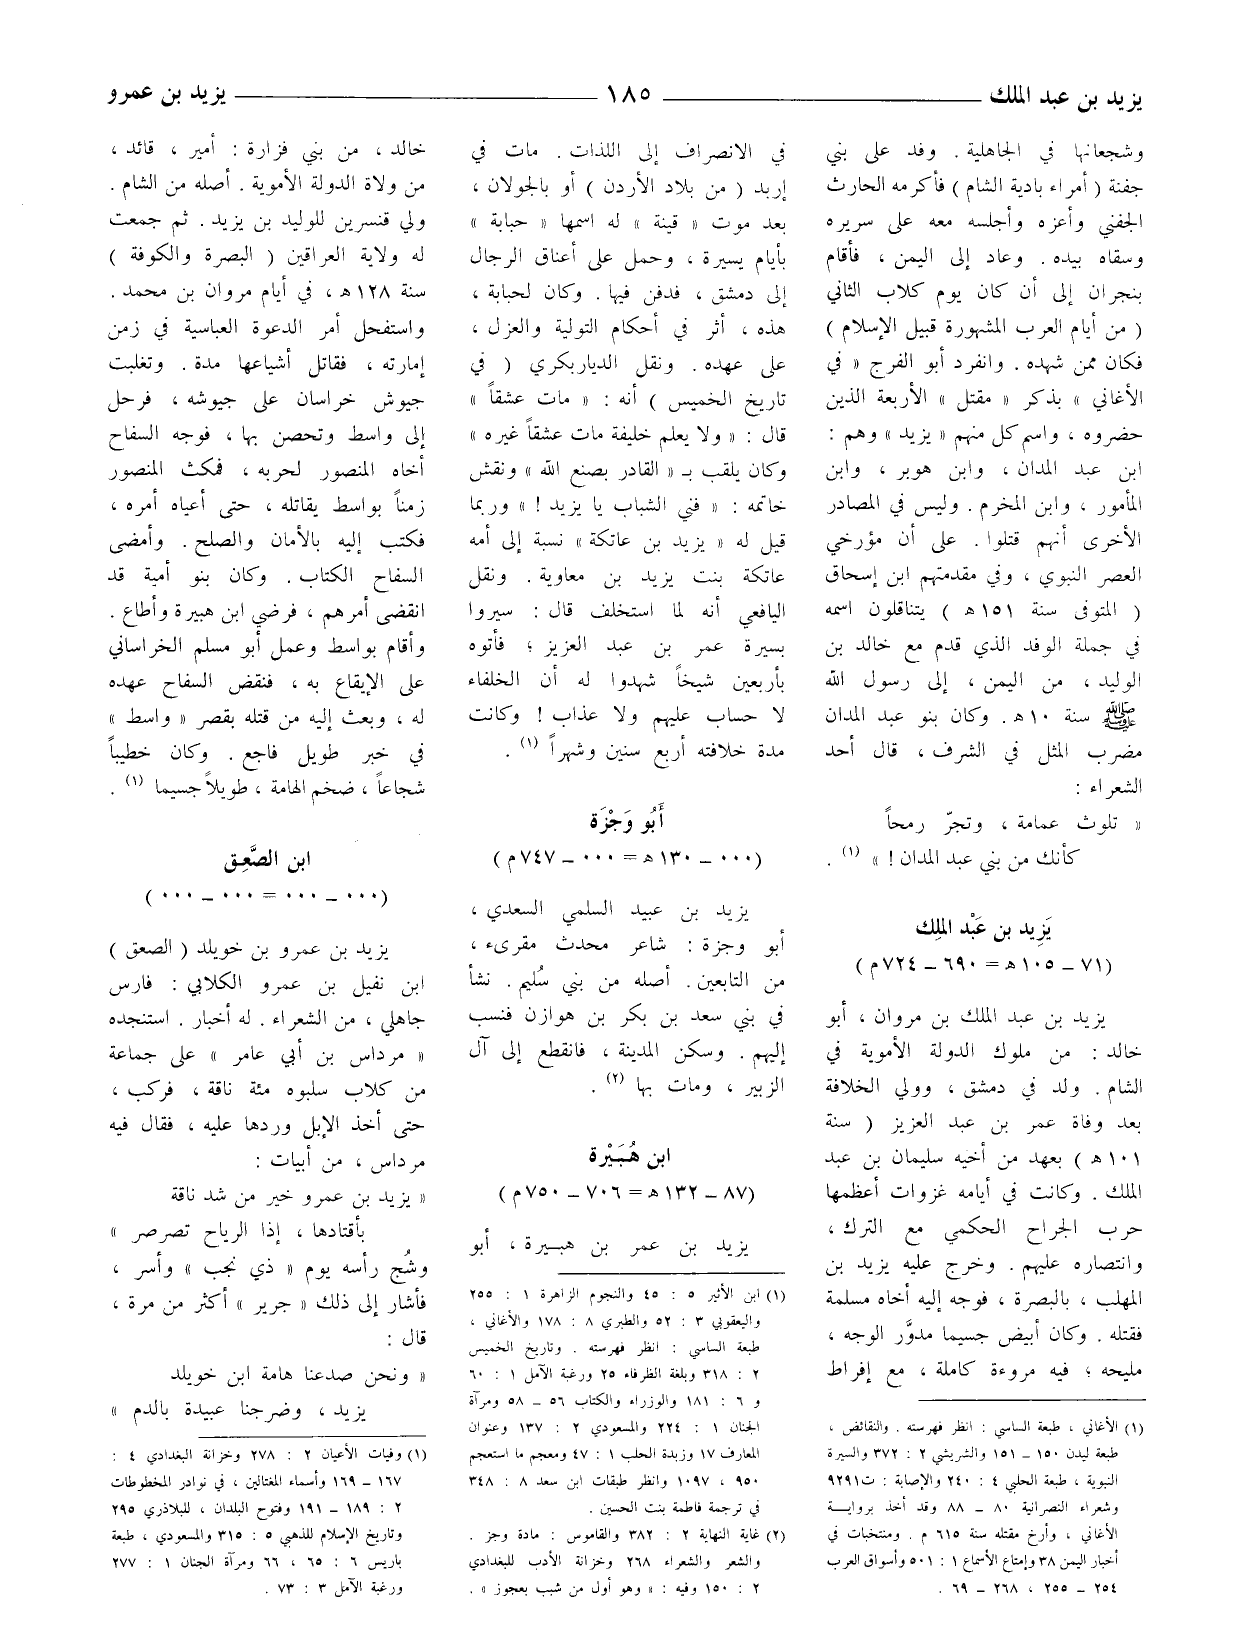 يزيد بن عبد الملك
١٨٥
يزيد بن عمرو
وشجعانها في الجاهلية . وفد على بني
جفنة ( أمراء بادية الشام ) فأكرمه الحارث
الجفني وأعزه وأجلسه معه على سريره
وسقاه بيده . وعاد إلى اليمن ، فأقام
بنجران إلى أن كان يوم كلاب الثاني
( من أيام العرب المشهورة قبيل الإسلام )
فكان ممن شهده . وانفرد أبو الفرج « في
الأغاني » بذكر « مقتل » الأربعة الذين
حضروه ، واسم كل منهم « يزيد » وهم :
ابن عبد المدان ، وابن هوبر ، وابن
المأمور ، وابن المخرم . وليس في المصادر
الأخرى أنهم قتلوا . على أن مؤرخي
العصر النبوي ، وفي مقدمتهم ابن إسحاق
( المتوفى سنة ١٥١ ه ) يتناقلون اسمه
في جملة الوفد الذي قدم مع خالد بن
الوليد ، من اليمن ، إلى رسول الله
ﷺ سنة ١٠ ه . وكان بنو عبد المدان
مضرب المثل في الشرف ، قال أحد
الشعراء :
« تلوث عمامة ، وتجرّ رمحاً
كأنك من بني عبد المدان ! » (١) .
يَزِيد بن عَبْد المَلِك
(٧١ – ١٠٥ ه = ٦٩٠ – ٧٢٤ م )
يزيد بن عبد الملك بن مروان ، أبو
خالد : من ملوك الدولة الأموية في
الشام . ولد في دمشق ، وولي الخلافة
بعد وفاة عمر بن عبد العزيز ( سنة
١٠١ ه ) بعهد من أخيه سليمان بن عبد
الملك . وكانت في أيامه غزوات أعظمها
حرب الجراح الحكمي مع الترك ،
وانتصاره عليهم . وخرج عليه يزيد بن
المهلب ، بالبصرة ، فوجه إليه أخاه مسلمة
فقتله . وكان أبيض جسيما مدوَّر الوجه ،
مليحه ؛ فيه مروءة كاملة ، مع إفراط
(١) الأغاني ، طبعة الساسي : انظر فهرسته . والنقائض ،
طبعة ليدن ١٥٠ – ١٥١ والشريشي ٢ : ٣٧٢ والسيرة
النبوية ، طبعة الحلبي ٤ : ٢٤٠ والإصابة : ت٩٢٩١
وشعراء النصرانية ٨٠ – ٨٨ وقد أخذ برواية
الأغاني ، وأرخ مقتله سنة ٦١٥ م . ومنتخبات في
أخبار اليمن ٣٨ وإمتاع الأسماع ١ : ٥٠١ وأسواق العرب
٢٥٤ – ٢٥٥ ، ٢٦٨ – ٦٩ .
في الانصراف إلى اللذات . مات في
إربد ( من بلاد الأردن ) أو بالجولان ،
بعد موت « قينة » له اسمها « حبابة »
بأيام يسيرة ، وحمل على أعناق الرجال
إلى دمشق ، فدفن فيها . وكان لحبابة ،
هذه ، أثر في أحكام التولية والعزل ،
على عهده . ونقل الدياربكري ( في
تاريخ الخميس ) أنه : « مات عشقاً »
قال : « ولا يعلم خليفة مات عشقاً غيره »
وكان يلقب بـ « القادر بصنع الله » ونقش
خاتمه : « فني الشباب يا يزيد ! » وربما
قيل له « يزيد بن عاتكة » نسبة إلى أمه
عاتكة بنت يزيد بن معاوية . ونقل
اليافعي أنه لما استخلف قال : سيروا
بسيرة عمر بن عبد العزيز ؛ فأتوه
بأربعين شيخاً شهدوا له أن الخلفاء
لا حساب عليهم ولا عذاب ! وكانت
مدة خلافته أربع سنين وشهراً (١) .
أَبُو وَجْزَة
(٠٠٠ – ١٣٠ ه = ٠٠٠ – ٧٤٧ م )
يزيد بن عبيد السلمي السعدي ،
أبو وجزة : شاعر محدث مقرىء ،
من التابعين . أصله من بني سُليم . نشأ
في بني سعد بن بكر بن هوازن فنسب
إليهم . وسكن المدينة ، فانقطع إلى آل
الزبير ، ومات بها (٢) .
ابن هُبَيْرة
(٨٧ – ١٣٢ ه = ٧٠٦ – ٧٥٠ م )
يزيد بن عمر بن هبيرة ، أبو
(١) ابن الأثير ٥ : ٤٥ والنجوم الزاهرة ١ : ٢٥٥
واليعقوبي ٣ : ٥٢ والطبري ٨ : ١٧٨ والأغاني ،
طبعة الساسي : انظر فهرسته . وتاريخ الخميس
٢ : ٣١٨ وبلغة الظرفاء ٢٥ ورغبة الآمل ١ : ٦٠
و ٦ : ١٨١ والوزراء والكتاب ٥٦ – ٥٨ ومرآة
الجنان ١ : ٢٢٤ والمسعودي ٢ : ١٣٧ وعنوان
المعارف ١٧ وزبدة الحلب ١ : ٤٧ ومعجم ما استعجم
٩٥٠ ، ١٠٩٧ وانظر طبقات ابن سعد ٨ : ٣٤٨
في ترجمة فاطمة بنت الحسين .
(٢) غاية النهاية ٢ : ٣٨٢ والقاموس : مادة وجز .
والشعر والشعراء ٢٦٨ وخزانة الأدب للبغدادي
٢ : ١٥٠ وفيه : « وهو أول من شبب بعجوز » .
خالد ، من بني فزارة : أمير ، قائد ،
من ولاة الدولة الأموية . أصله من الشام .
ولي قنسرين للوليد بن يزيد . ثم جمعت
له ولاية العراقين ( البصرة والكوفة )
سنة ١٢٨ ه ، في أيام مروان بن محمد .
واستفحل أمر الدعوة العباسية في زمن
إمارته ، فقاتل أشياعها مدة . وتغلبت
جيوش خراسان على جيوشه ، فرحل
إلى واسط وتحصن بها ، فوجه السفاح
أخاه المنصور لحربه ، فمكث المنصور
زمناً بواسط يقاتله ، حتى أعياه أمره ،
فكتب إليه بالأمان والصلح . وأمضى
السفاح الكتاب . وكان بنو أمية قد
انقضى أمرهم ، فرضي ابن هبيرة وأطاع .
وأقام بواسط وعمل أبو مسلم الخراساني
على الإيقاع به ، فنقض السفاح عهده
له ، وبعث إليه من قتله بقصر « واسط »
في خبر طويل فاجع . وكان خطيباً
شجاعاً ، ضخم الهامة ، طويلاً جسيما (١) .
ابن الصَّعِق
(٠٠٠ – ٠٠٠ = ٠٠٠ – ٠٠٠ )
يزيد بن عمرو بن خويلد ( الصعق )
ابن نفيل بن عمرو الكلابي : فارس
جاهلي ، من الشعراء . له أخبار . استنجده
« مرداس بن أبي عامر » على جماعة
من كلاب سلبوه مئة ناقة ، فركب ،
حتى أخذ الإبل وردها عليه ، فقال فيه
مرداس ، من أبيات :
« يزيد بن عمرو خير من شد ناقة
بأقتادها ، إذا الرياح تصرصر »
وشُج رأسه يوم « ذي نجب » وأسر ،
فأشار إلى ذلك « جرير » أكثر من مرة ،
قال :
« ونحن صدعنا هامة ابن خويلد
يزيد ، وضرجنا عبيدة بالدم »
(١) وفيات الأعيان ٢ : ٢٧٨ وخزانة البغدادي ٤ :
١٦٧ – ١٦٩ وأسماء المغتالين ، في نوادر المخطوطات
٢ : ١٨٩ – ١٩١ وفتوح البلدان ، للبلاذري ٢٩٥
وتاريخ الإسلام للذهبي ٥ : ٣١٥ والمسعودي ، طبعة
باريس ٦ : ٦٥ ، ٦٦ ومرآة الجنان ١ : ٢٧٧
ورغبة الآمل ٣ : ٧٣ .